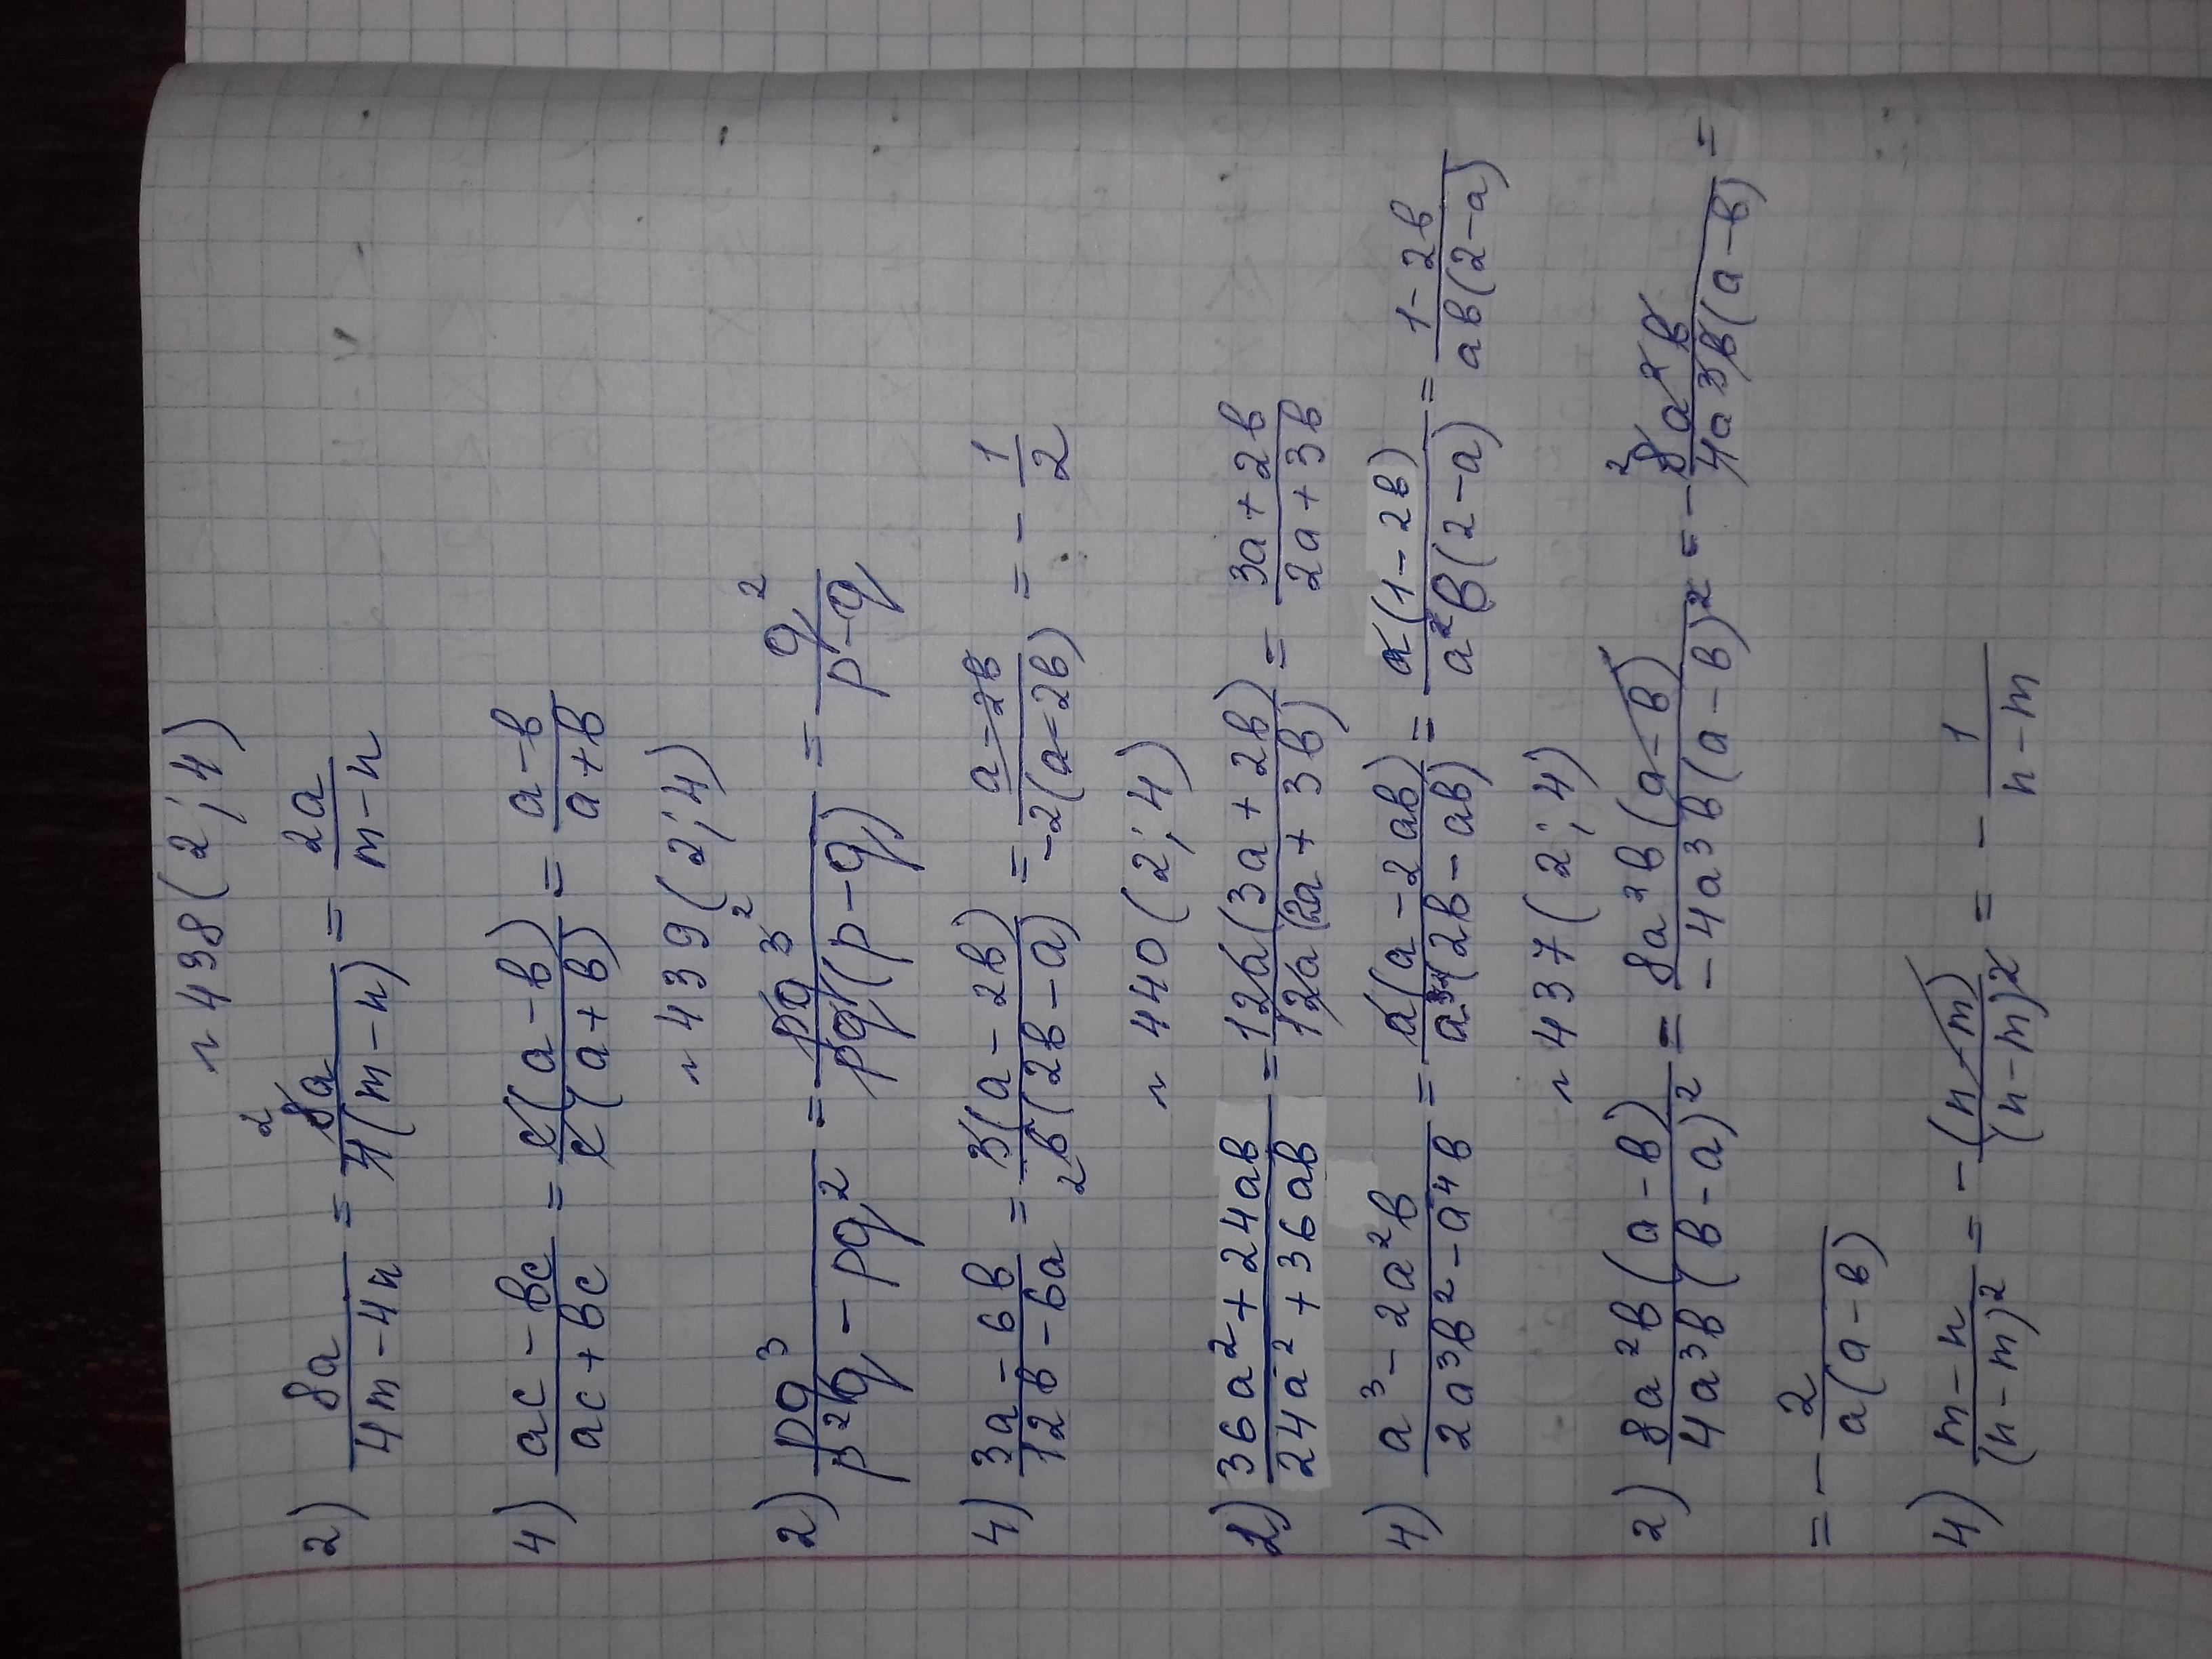 № 438 (2; 4)
2) 8a/(4m - 4n) = 8a/(4(m - n)) = 2a/(m - n)
4) (ac - вc)/(ac + вc) = c(a - в)/(c(a + в)) = (a - в)/(a + в)
№ 439 (2; 4)
2) pq³/(p²q - pq²) = pq³/(pq(p - q)) = q²/(p - q)
4) (3a - 6в)/(12в - 6a) = 3(a - 2в)/(6(2в - a)) = (a - 2в)/(-2(a - 2в)) = - 1/2
№ 440 (2; 4)
2) (36a² + 24aв)/(24a² + 36aв) = 12a(3a + 2в)/(12a(2a + 3в)) = (3a + 2в)/(2a + 3в)
4) (a³ - 2a²в)/(2a³в² - a⁴в) = a(a - 2aв)/(a³(2в - aв)) = a(1 - 2в)/(a²в(2 - a)) = (1 - 2в)/(aв(2 - a))
№ 437 (2; 4)
2) 8a²в(a - в)/(4a³в(в - a)²) = 8a²в(a - в)/(-4a³в(a - в)²) = - 8a²в/(4a³в(a - в)) =
= - 2/(a(a - в))
4) (m - n)/(n - m)² = - (n - m)/(n - m)² = - 1/(n - m)